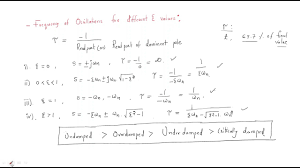 - Frequency of Oscillations for different ξ values:
τ = -1 / Real part (or) Real part of dominant pole
τ: 63.7 % of final value
i) ξ = 0, s = ±jωn, τ = -1/0 = ∞ ✓
ii) 0<ξ<1, s = -ξωn ± jωn √1-ξ² τ = -1/-ξωn = 1/ξωn ✓
iii) ξ = 1, s = -ωn, -ωn, τ = -1/-ωn = 1/ωn ✓
iv) ξ > 1, s = -ξωn ± ωn √ξ²-1, τ = 1/ξωn - √ξ²-1 ωn ✓
Undamped > Overdamped > Underdamped > Critically damped